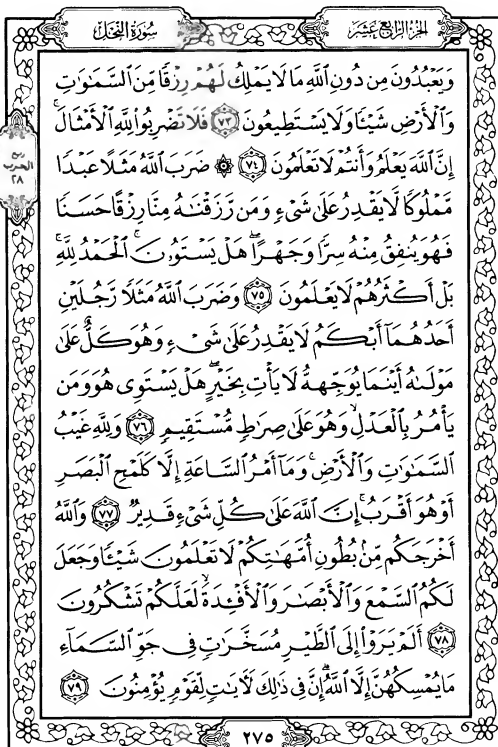 الجزء الرابع عشر
سورة النحل
وَيَعْبُدُونَ مِن دُونِ ٱللَّهِ مَا لَا يَمْلِكُ لَهُمْ رِزْقًا مِّنَ ٱلسَّمَٰوَٰتِ
وَٱلْأَرْضِ شَيْـًٔا وَلَا يَسْتَطِيعُونَ ٧٣ فَلَا تَضْرِبُوا۟ لِلَّهِ ٱلْأَمْثَالَ ۚ
ربع الحزب ٢٨
إِنَّ ٱللَّهَ يَعْلَمُ وَأَنتُمْ لَا تَعْلَمُونَ ٧٤ ۞ ضَرَبَ ٱللَّهُ مَثَلًا عَبْدًا
مَّمْلُوكًا لَّا يَقْدِرُ عَلَىٰ شَىْءٍ وَمَن رَّزَقْنَٰهُ مِنَّا رِزْقًا حَسَنًا
فَهُوَ يُنفِقُ مِنْهُ سِرًّا وَجَهْرًا ۖ هَلْ يَسْتَوُۥنَ ۚ ٱلْحَمْدُ لِلَّهِ ۚ
بَلْ أَكْثَرُهُمْ لَا يَعْلَمُونَ ٧٥ وَضَرَبَ ٱللَّهُ مَثَلًا رَّجُلَيْنِ
أَحَدُهُمَآ أَبْكَمُ لَا يَقْدِرُ عَلَىٰ شَىْءٍ وَهُوَ كَلٌّ عَلَىٰ
مَوْلَىٰهُ أَيْنَمَا يُوَجِّههُّ لَا يَأْتِ بِخَيْرٍ ۖ هَلْ يَسْتَوِى هُوَ وَمَن
يَأْمُرُ بِٱلْعَدْلِ ۙ وَهُوَ عَلَىٰ صِرَٰطٍ مُّسْتَقِيمٍ ٧٦ وَلِلَّهِ غَيْبُ
ٱلسَّمَٰوَٰتِ وَٱلْأَرْضِ ۚ وَمَآ أَمْرُ ٱلسَّاعَةِ إِلَّا كَلَمْحِ ٱلْبَصَرِ
أَوْ هُوَ أَقْرَبُ ۚ إِنَّ ٱللَّهَ عَلَىٰ كُلِّ شَىْءٍ قَدِيرٌ ٧٧ وَٱللَّهُ
أَخْرَجَكُم مِّنۢ بُطُونِ أُمَّهَٰتِكُمْ لَا تَعْلَمُونَ شَيْـًٔا وَجَعَلَ
لَكُمُ ٱلسَّمْعَ وَٱلْأَبْصَٰرَ وَٱلْأَفْـِٔدَةَ ۙ لَعَلَّكُمْ تَشْكُرُونَ
٧٨ أَلَمْ يَرَوْا۟ إِلَى ٱلطَّيْرِ مُسَخَّرَٰتٍ فِى جَوِّ ٱلسَّمَآءِ
مَا يُمْسِكُهُنَّ إِلَّا ٱللَّهُ ۗ إِنَّ فِى ذَٰلِكَ لَـَٔايَٰتٍ لِّقَوْمٍ يُؤْمِنُونَ ٧٩
٢٧٥